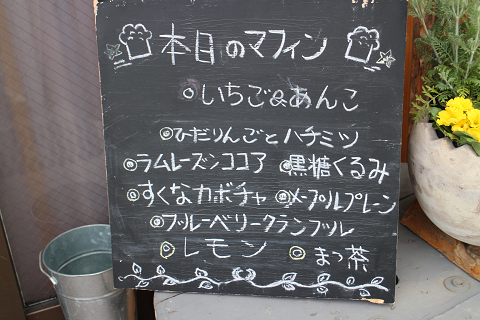 本日のマフィン
◎いちご&あんこ
◎ひだりんごとハチミツ
◎ラムレーズンココア ◎黒糖くるみ
◎すくなカボチャ ◎メープルプレーン
◎ブルーベリークランブル
◎レモン ◎まっ茶